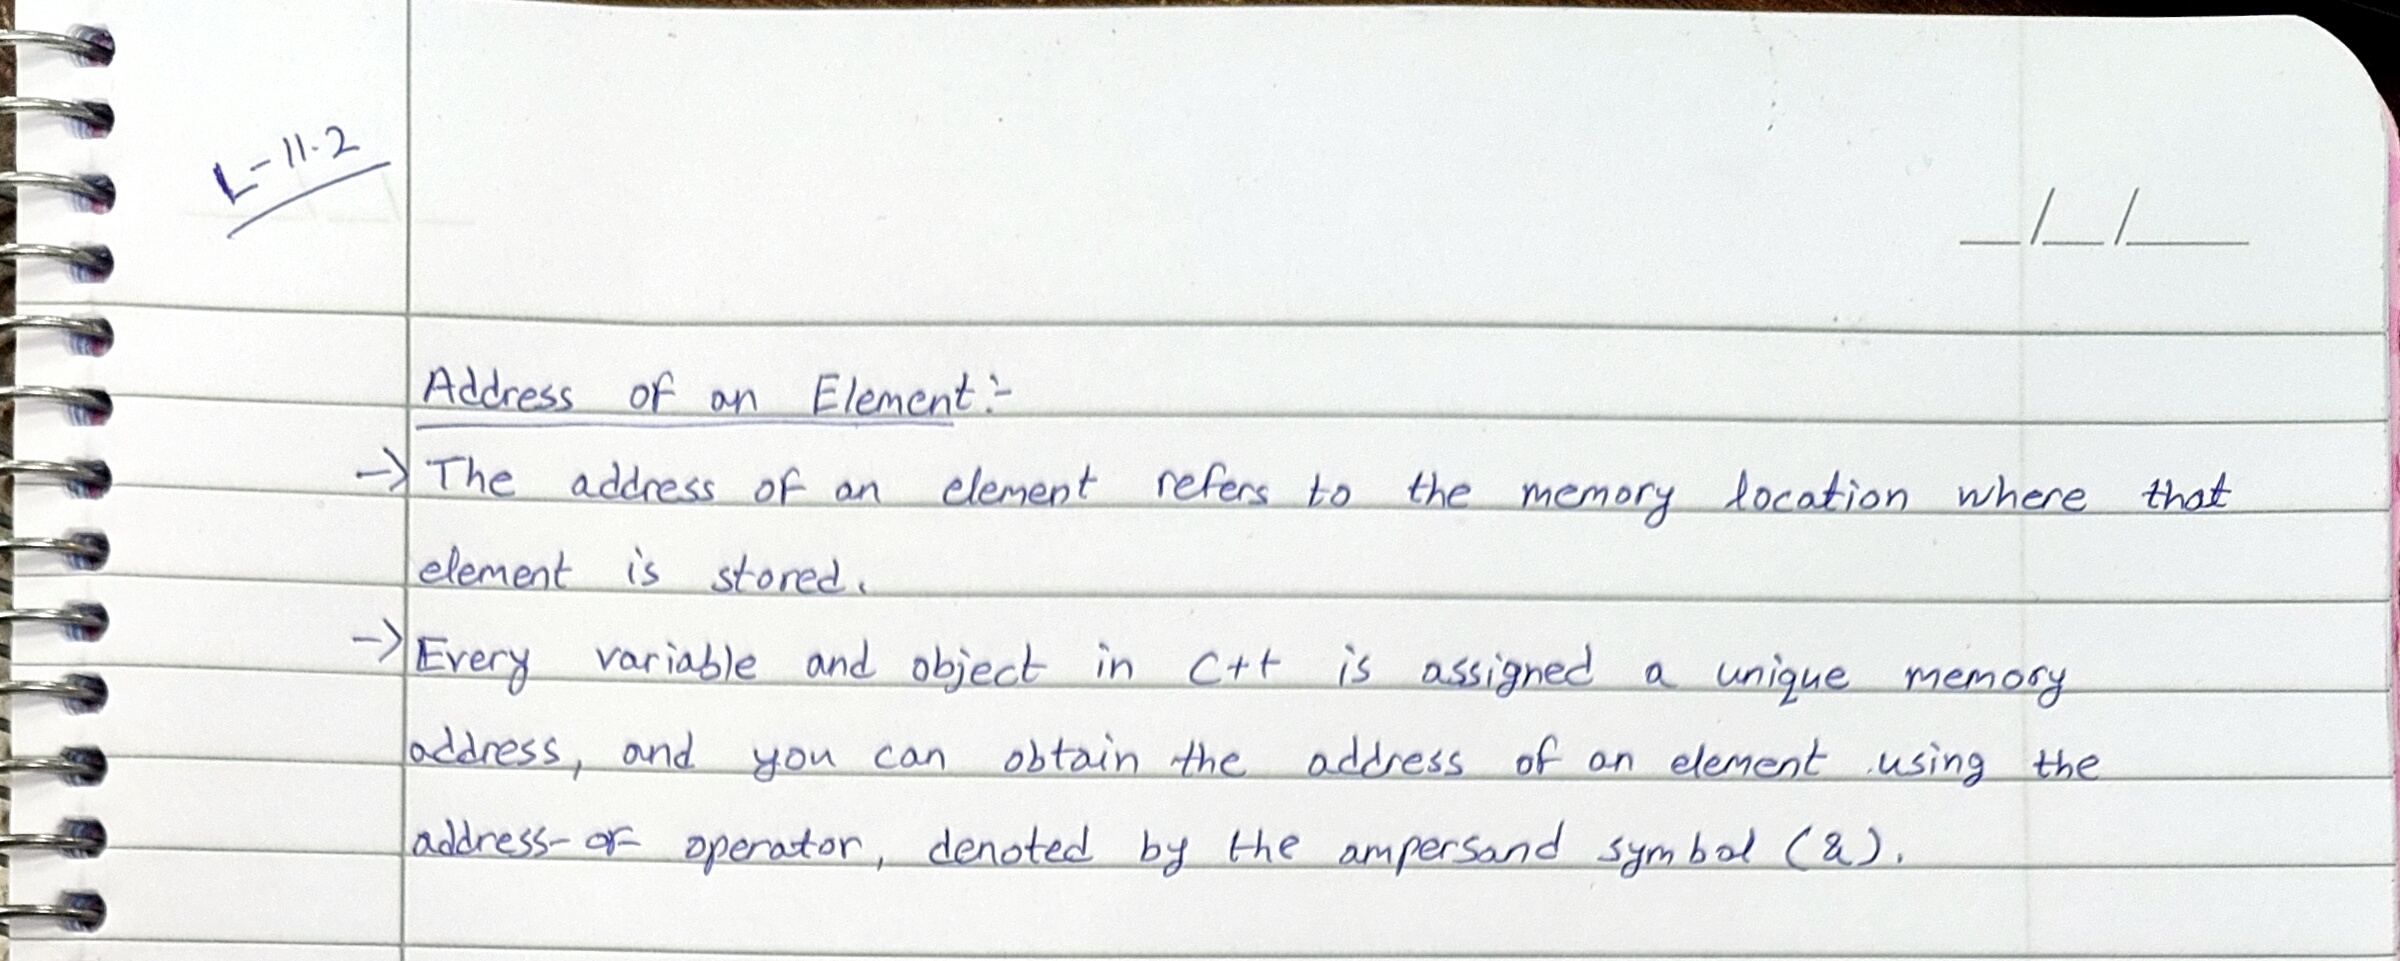 L-11.2
_/_/_
Address of an Element:-
→ The address of an element refers to the memory location where that
element is stored.
→ Every variable and object in C++ is assigned a unique memory
address, and you can obtain the address of an element using the
address-of operator, denoted by the ampersand symbol (&).